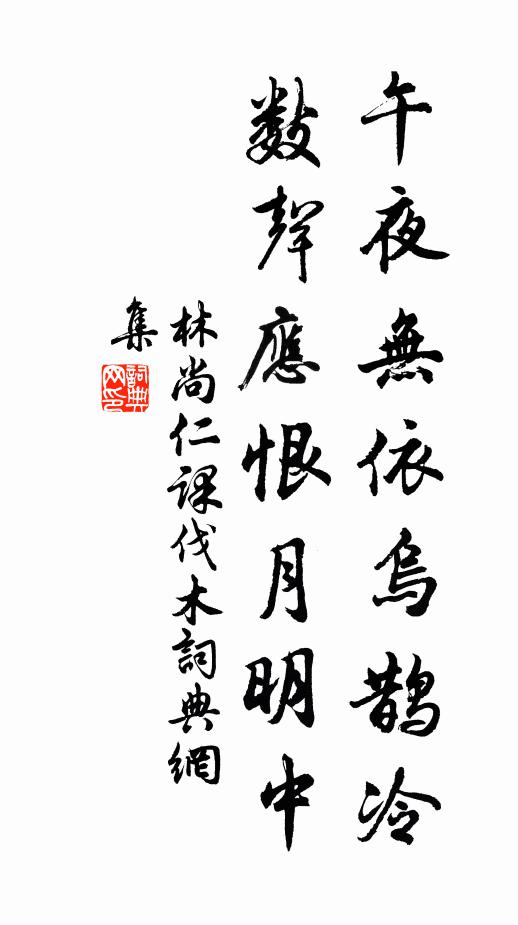 午夜無依烏鵲冷
數聲應恨月明中
林尚仁課伐木詞典網
集
詞典
网印